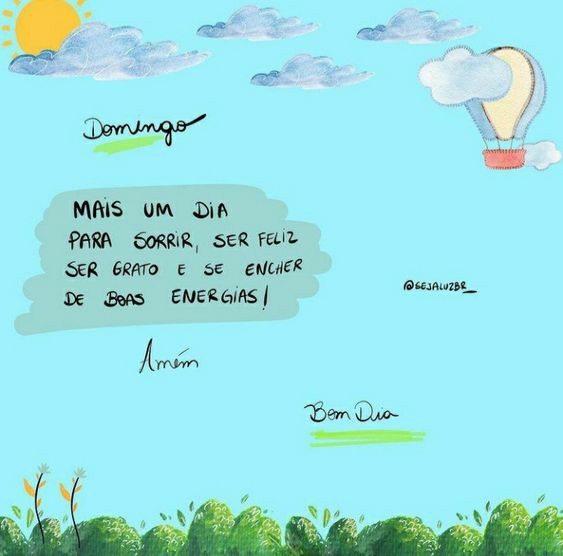 Domingo
MAIS UM DIA
PARA SORRIR, SER FELIZ
SER GRATO E SE ENCHER
DE BOAS ENERGIAS!
@SEJALUZBR_
Amém
Bom Dia